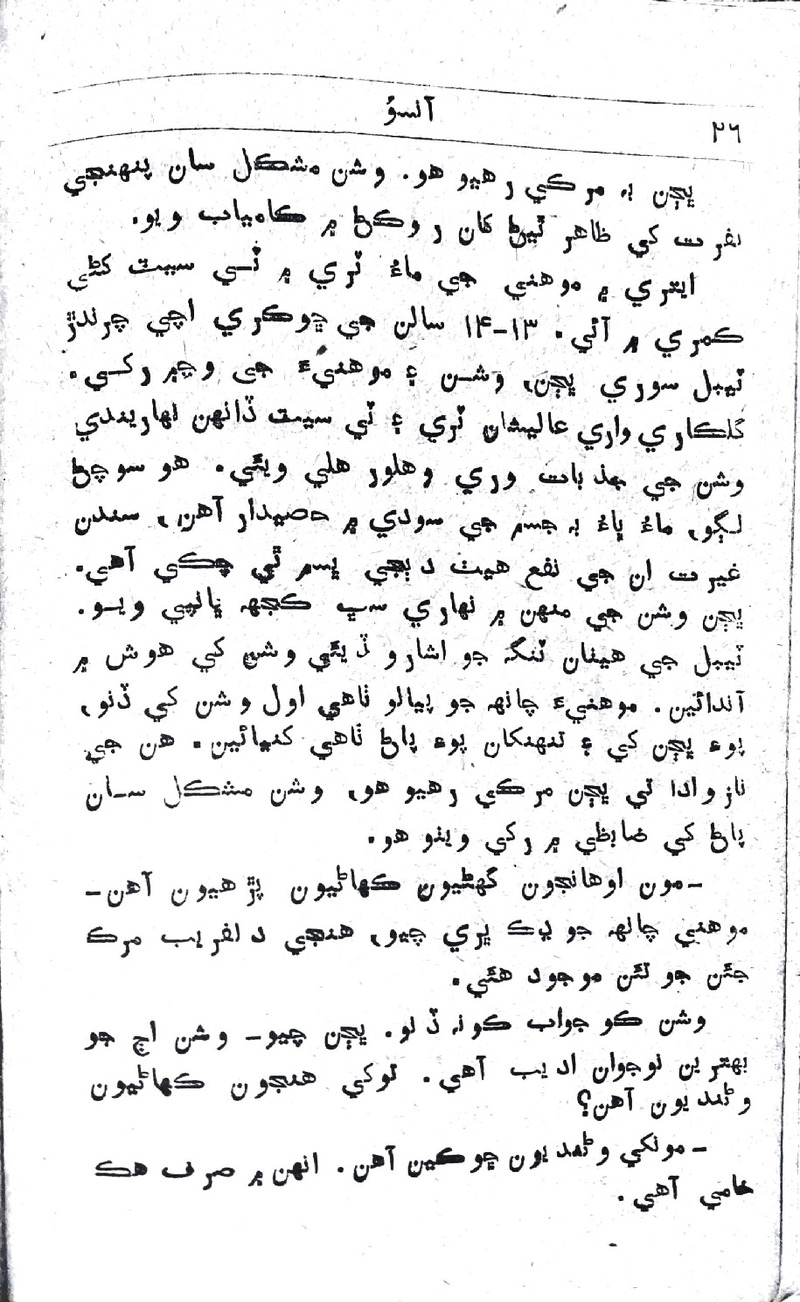 آنسوُ
٢٦
ڀڄن بہ مرڪي رهيو هو. وشن مشڪل سان پنهنجي
نفرت کي ظاهر ٿيڻ کان روڪڻ ۾ ڪامياب ويو.
ايتري ۾ موهني جي ماءُ ٽري ۾ ٽي سيٽ کڻي
ڪمري ۾ آئي. ١٣-١۴ سالن جي ڇوڪري اچي چرندڙ
ٽيبل سوري ڀڄن، وشن ۽ موهنيءَ جي وچ۾ رکي.
گلڪاري واري عاليشان ٽري ۽ ٽي سيٽ ڏانهن نهاريندي
وشن جي جذبات وري وهلور هلي ويئي. هو سوچڻ
لڳو، ماءُ پاءُ بہ جسم جي سودي ۾ حصيدار آهن، سندن
غيرت ان جي نفع هيٺ دٻجي ڀسم ٿي چڪي آهي.
ڀڄن وشن جي منهن ۾ نهاري سڀ ڪجهہ ڀانپي ويو.
ٽيبل جي هيٺان ٽنگہ جو اشارو ڏيئي وشن کي هوش ۾
آندائين. موهنيءَ چانهہ جو پيالو ٺاهي اول وشن کي ڏنو،
پوءِ ڀڄن کي ۽ تنهنکان پوءِ پاڻ ٺاهي کنيائين. هن جي
ناز وادا تي ڀڄن مرڪي رهيو هو، وشن مشڪل سان
پاڻ کي ضابطي ۾ رکي ويٺو هو.
–مون اوهانجون گهڻيون ڪهاڻيون پڙهيون آهن–
موهني چانهہ جو ڍڪ ڀري چيو، هنجي دلفريب مرڪ
جئن جو تئن موجود هئي.
وشن ڪو جواب ڪونہ ڏنو. ڀڄن چيو– وشن اڄ جو
بهترين نوجوان اديب آهي. توکي هنجون ڪهاڻيون
وڻنديون آهن؟
–مونکي وڻنديون ڇوڪين آهن. انهن ۾ صرف هڪ
خامي آهي.